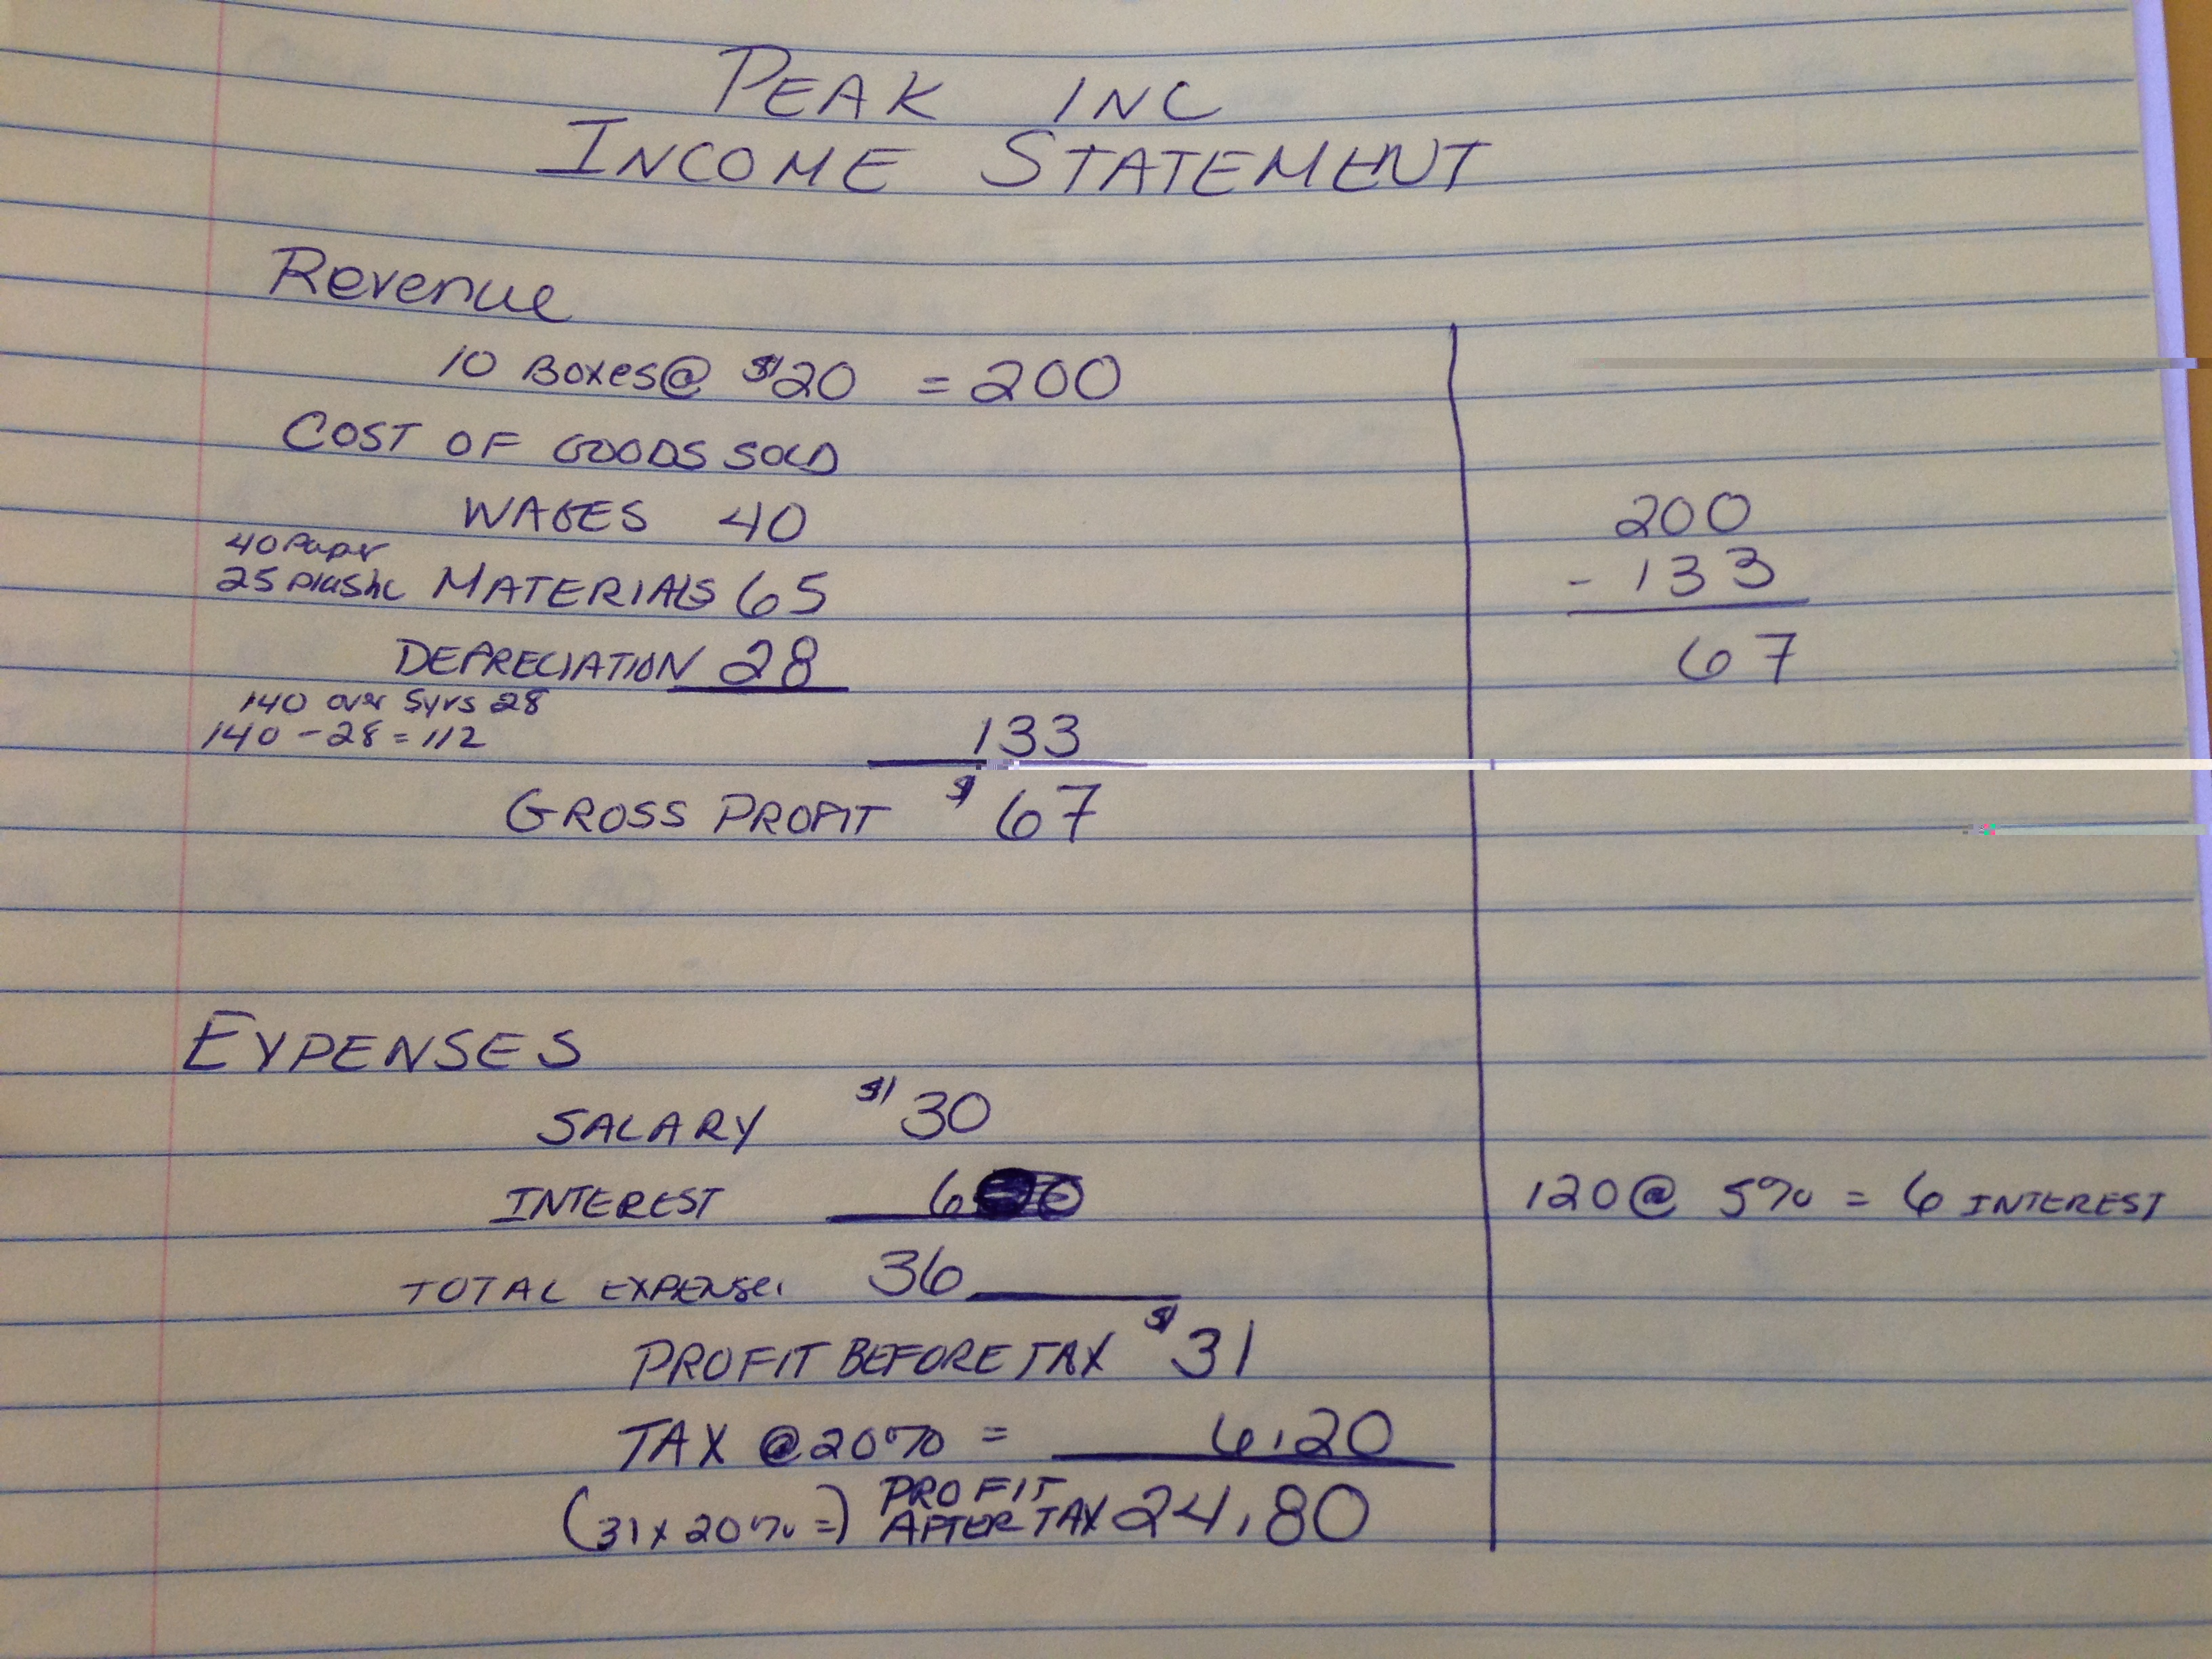 PEAK INC
INCOME STATEMENT
Revenue
10 Boxes @ $20 = 200
COST OF GOODS SOLD
WAGES 40
200
40 Paper
- 133
25 Plastic MATERIALS 65
67
DEPRECIATION 28
140 over 5yrs 28
140 - 28 = 112
133
GROSS PROFIT $ 67
EXPENSES
SALARY $ 30
INTEREST 6
120 @ 5% = 6 INTEREST
TOTAL EXPENSE. 36
PROFIT BEFORE TAX $ 31
TAX @ 20% = 6.20
(31 x 20% =) PROFIT AFTER TAX 24.80